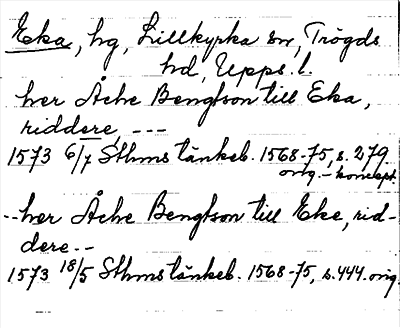 Eka, hg, Lillkyrka sn, Trögds
hd, Upps. l.
her Åcke Bengtson till Eka,
riddere, ---
1573 6/7 Sthms tänkeb. 1568-75, s. 279
orig. - koncept.
--her Åcke Bengtson till Eke, rid-
dere --
1573 18/5 Sthms tänkeb. 1568-75, s. 444. orig.